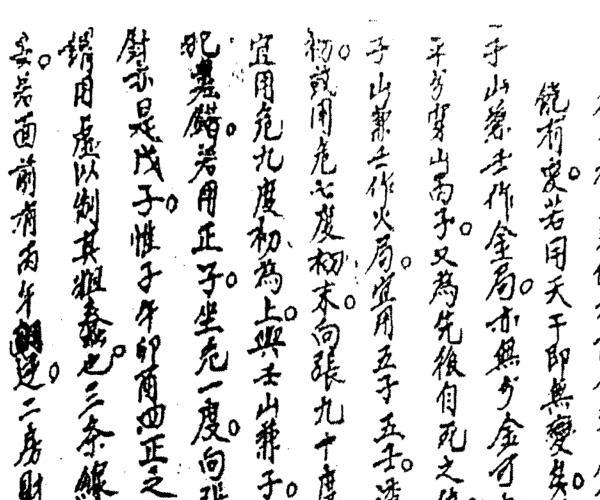 饒有變。若用天干即無變矣。
子山兼壬作金局。亦無分金可
平分穿山丙子。又為先後自死之
子山兼壬作火局。宜用五子五壬。
初或用危七度初末。向張九十度
宜用危九度初為上。與壬山兼子。
犯差錯。若用正子坐危一度。向張
尉亦是戊子。惟子午卯酉四正之
謂用虛以制其粗蠢也。三条線
妥。若面前有丙午朝逆。二房財